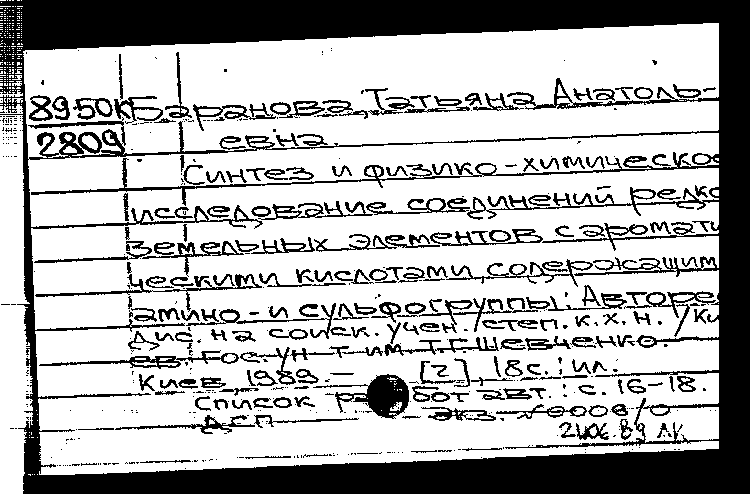 89-50к Баранова, Татьяна Анатоль-
2809 евна.
Синтез и физико-химическое
исследование соединений редко
земельных элементов с аромати
ческими кислотами, содержащим
амино- и сульфогруппы: Авторе
дис. на соиск. учен. степ. к.х.н. / Ки
ев. Гос. ун-т им. Т.Г. Шевченко.
Киев, 1989. - [2], 18с.: ил.
Список работ авт.: с. 16-18.
ДСП экз.
89 Л.К.